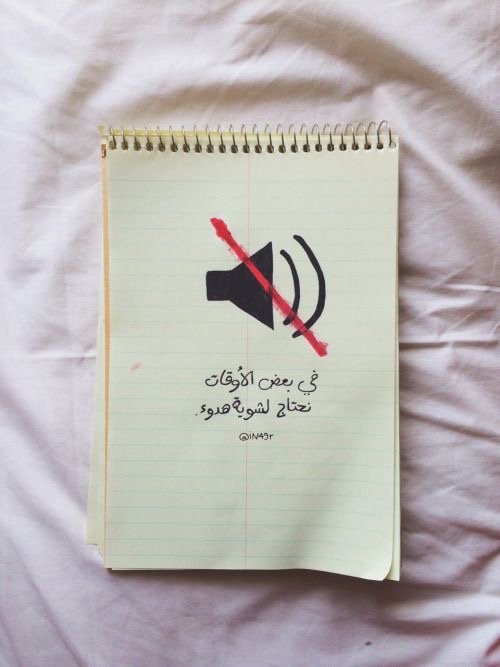 في بعض الأوقات
نحتاج لشوية هدوء.
@iN49r